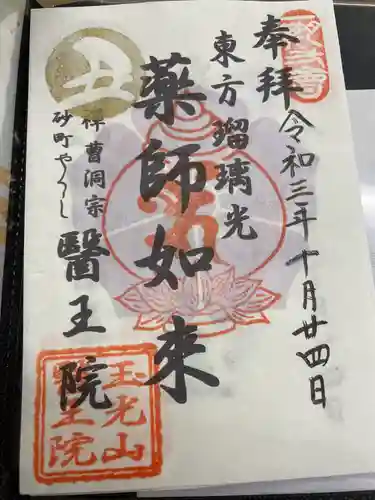 奉拝
令和三年十月廿四日
東方瑠璃光
薬師如来
丑
禅曹洞宗
砂町やくし
醫王院
玉光山
醫王院